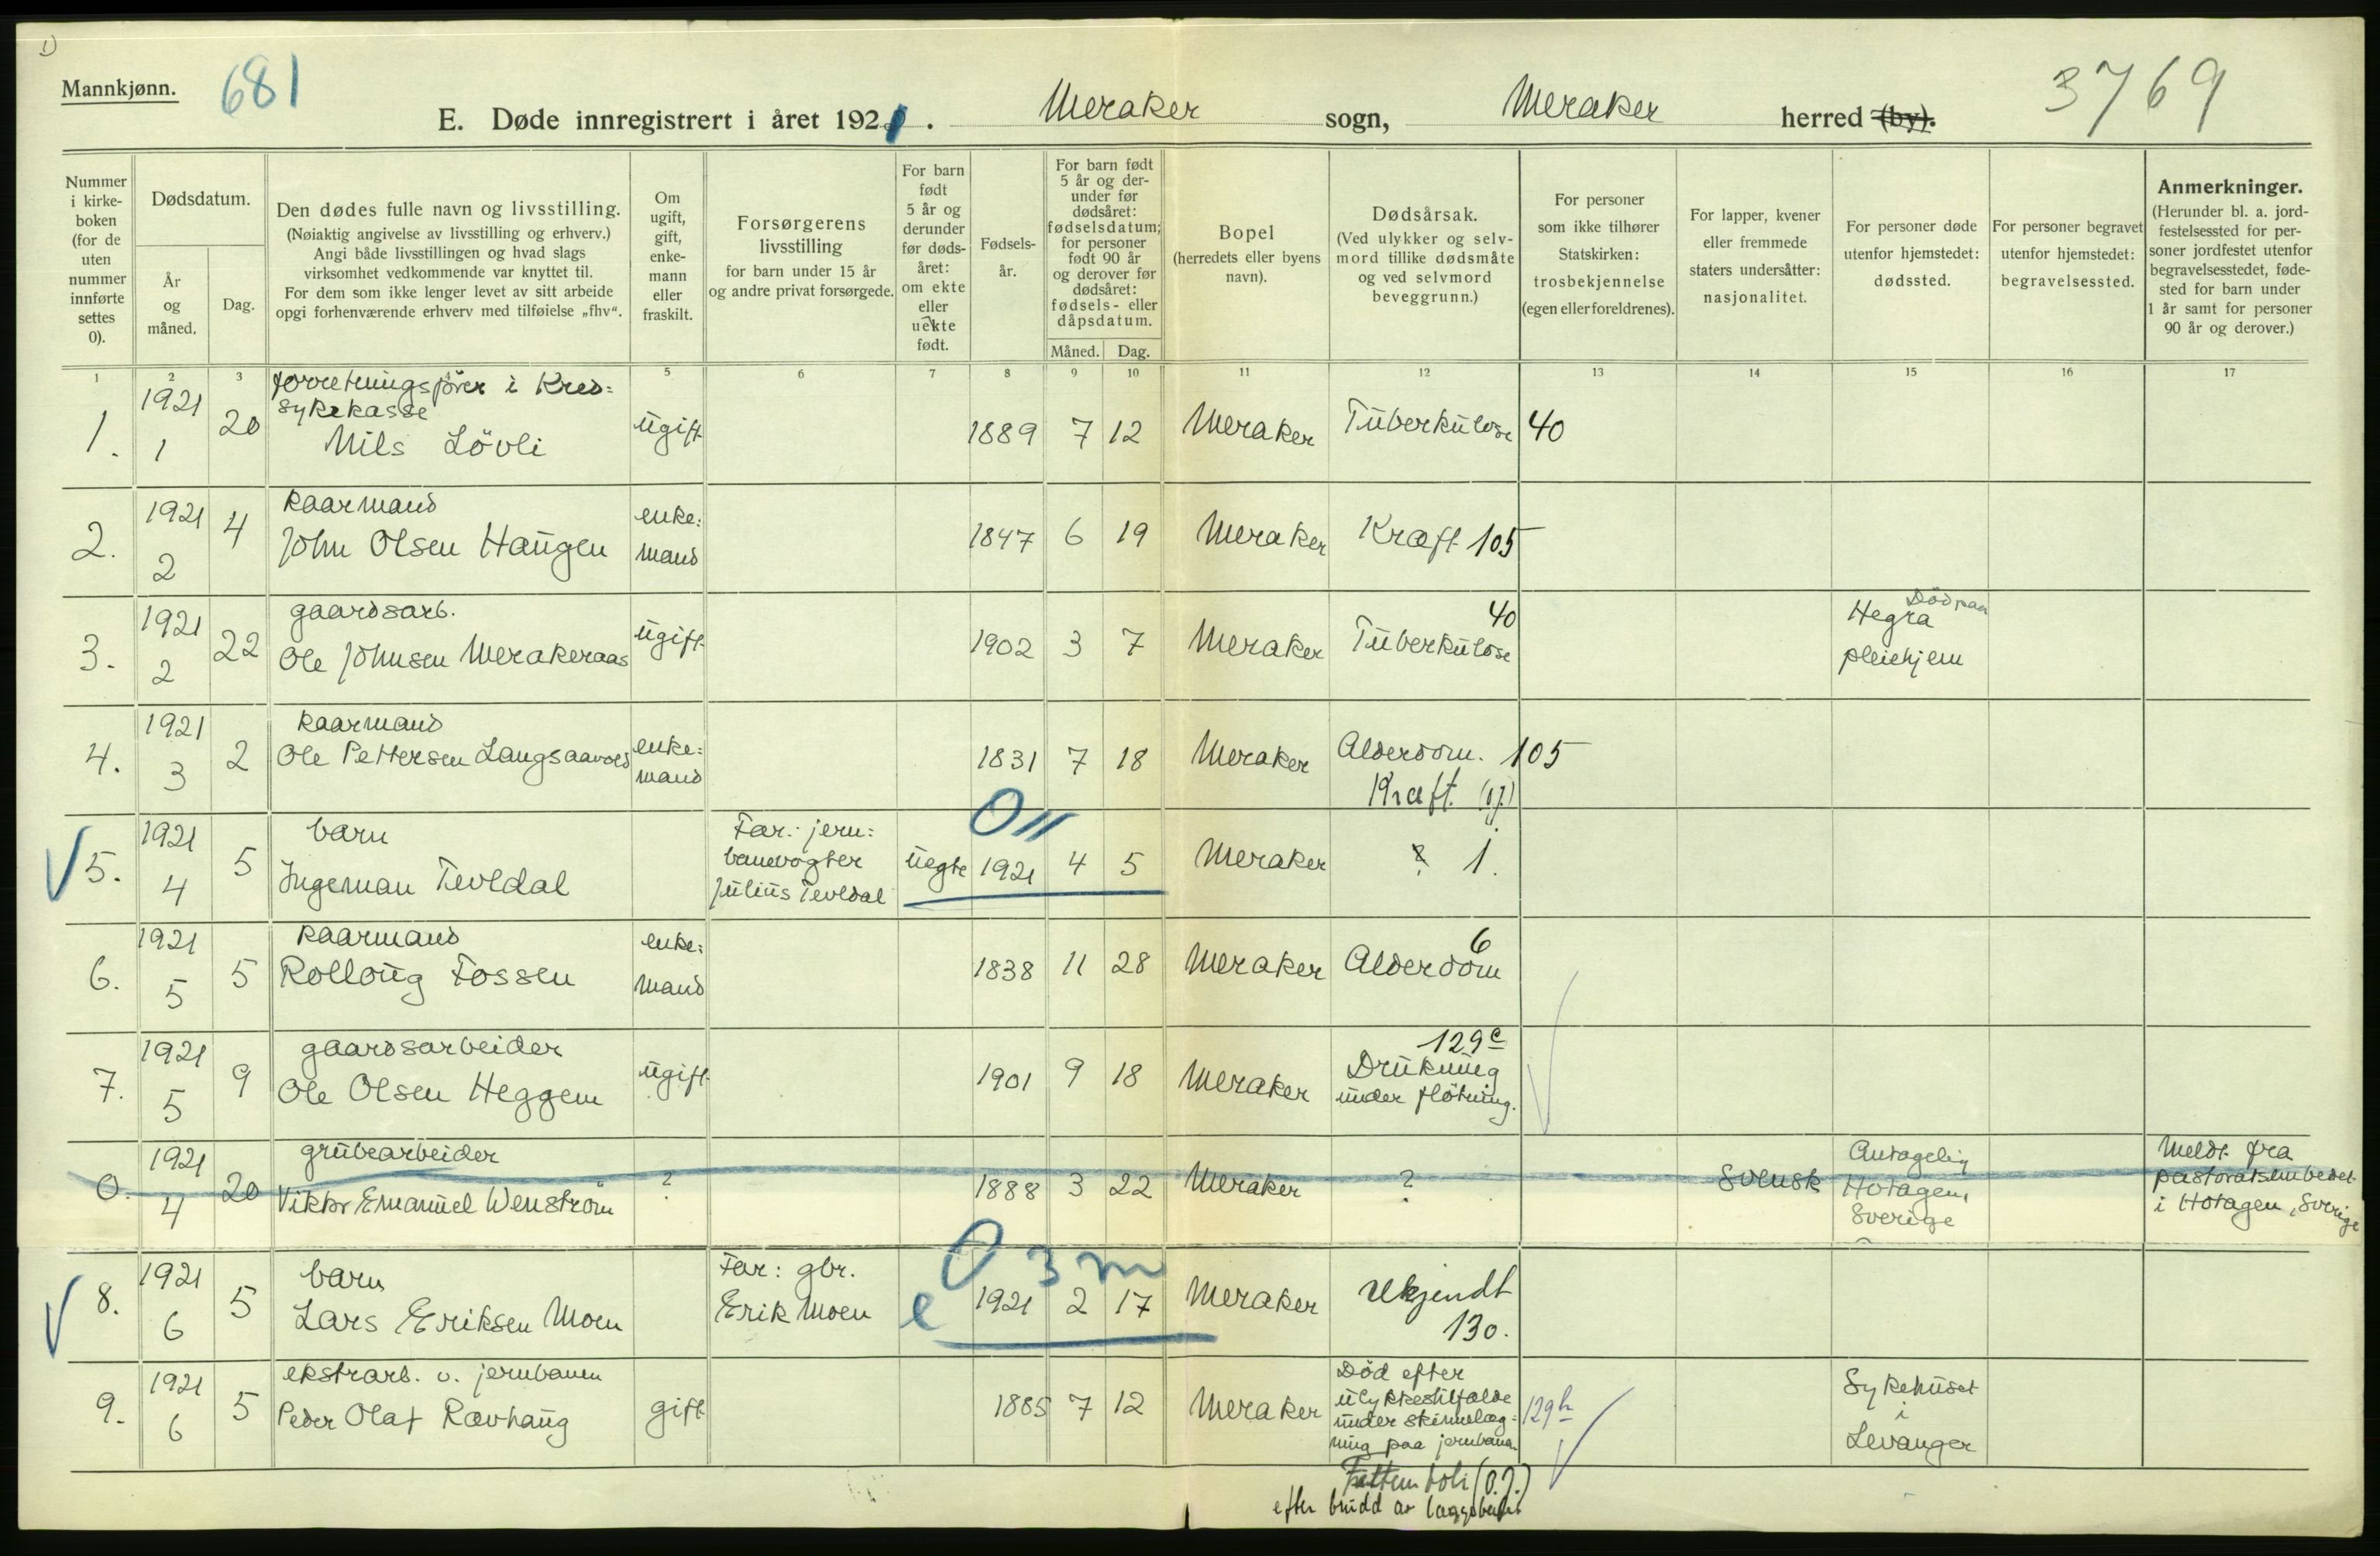 1)
Mannkjønn.
681
E. Døde innregistrert i året 1921. Meraker sogn, Meraker herred (by).
3769
Nummer i kirkeboken (for de uten nummer innførte settes 0).
Dødsdatum.
År og måned.
Dag.
Den dødes fulle navn og livsstilling.
(Nøiaktig angivelse av livsstilling og erhverv.)
Angi både livsstillingen og hvad slags
virksomhet vedkommende var knyttet til.
For dem som ikke lenger levet av sitt arbeide
opgi forhenværende erhverv med tilføielse „fhv“.
Om ugift, gift, enkemann eller fraskilt.
Forsørgerens livsstilling
for barn under 15 år
og andre privat forsørgede.
For barn født 5 år og derunder før dødsåret: om ekte eller uekte født.
Fødselsår.
For barn født 5 år og derunder før dødsåret: fødselsdatum; for personer født 90 år og derover før dødsåret: fødsels- eller dåpsdatum.
Måned. Dag.
Bopel
(herredets eller byens navn).
Dødsårsak.
(Ved ulykker og selvmord tillike dødsmåte og ved selvmord beveggrunn.)
For personer som ikke tilhører Statskirken: trosbekjennelse (egen eller foreldrenes).
For lapper, kvener eller fremmede staters undersåtter: nasjonalitet.
For personer døde utenfor hjemstedet: dødssted.
For personer begravet utenfor hjemstedet: begravelsessted.
Anmerkninger.
(Herunder bl. a. jordfestelsessted for personer jordfestet utenfor begravelsesstedet, fødested for barn under 1 år samt for personer 90 år og derover.)
1 2 3 4 5 6 7 8 9 10 11 12 13 14 15 16 17
1. 1921 1 20 forretningsfører i Kredssykekasse Nils Lövli ugift 1889 7 12 Meraker Tuberkulose 40
2. 1921 2 4 kaarmand John Olsen Haugen enke=mand 1847 6 19 Meraker Kræft 105
3. 1921 2 22 gaardsarb. Ole Johnsen Merakeraas ugift 1902 3 7 Meraker Tuberkulose 40 Død paa Hegra pleiehjem
4. 1921 3 2 kaarmand Ole Pettersen Langsaavold enke=mand 1831 7 18 Meraker Alderdom. 105 Kræft.
5. 1921 4 5 barn Ingeman Tevldal Far: jern=banevogter Julius Tevldal uegte 1921 4 5 Meraker ? 1.
6. 1921 5 5 kaarmand Rolloug Fossen enke=mand 1838 11 28 Meraker Alderdom 6
7. 1921 5 9 gaardsarbeider Ole Olsen Heggem ugift 1901 9 18 Meraker 129c Drukning under fløtning.
0. 1921 4 20 grubearbeider Viktor Emanuel Wenström ? 1888 3 22 Meraker ? Svensk Antagelig Hotagen, Sverige Meldt fra pastoratsembedet i Hotagen, Sverige
8. 1921 6 5 barn Lars Eriksen Moen Far: gbr. Erik Moen e 0 3 m 1921 2 17 Meraker Ukjendt 130.
9. 1921 6 5 ekstraarb. v. jernbanen Peder Olaf Rævhaug gift 1885 7 12 Meraker Død efter ulykkestilfælde under skinnelæg=ning paa jernbane. 129h Sykehuset i Levanger
Fettemboli (O.J.)
efter brudd av læggsbenet